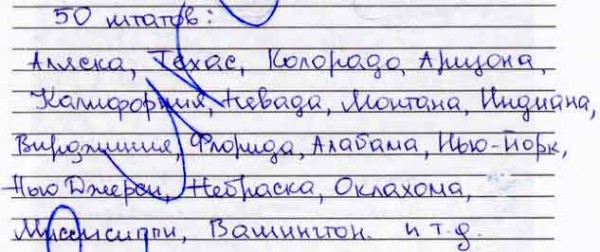 50 штатов:
Аляска, Техас, Колорадо, Аризона,
Калифорния, Невада, Монтана, Индиана,
Вирджиния, Флорида, Алабама, Нью-Йорк,
Нью Джерси, Небраска, Оклахома,
Миссисипи, Вашингтон. и т.д.